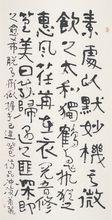 素處以默妙機其微
飲之太和獨鶴與飛猶之
惠風荏苒在衣閱音修
篁美曰載歸遇之匪深即
之愈希脱有形似握手已違